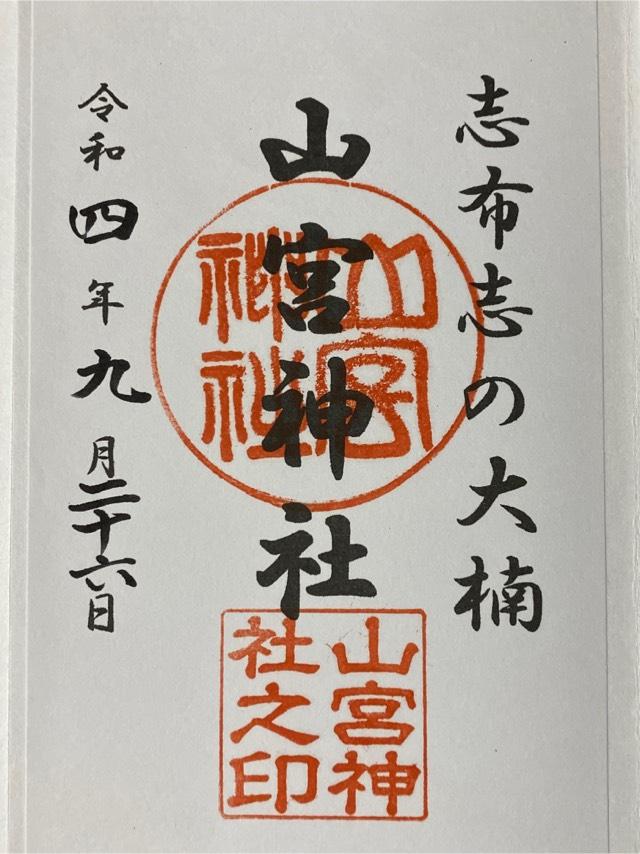 志布志の大楠
山宮神社
山宮神社
山宮神社之印
令和四年九月二十六日